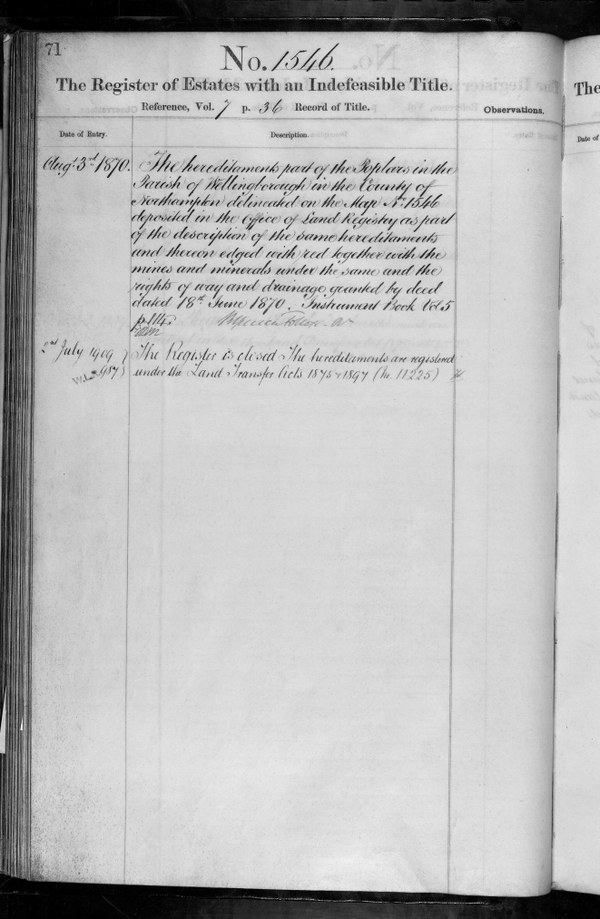 71
No. 1546.
The Register of Estates with an Indefeasible Title.
Reference, Vol. 7 p. 36 Record of Title.
Observations.
Date of Entry.
Description.
Augt. 3rd 1870.
The hereditaments part of the Poplars in the
Parish of Wellingborough in the County of
Northampton delineated on the Map No. 1546
deposited in the Office of Land Registry as part
of the description of the same hereditaments
and thereon edged with red together with the
mines and minerals under the same and the
rights of way and drainage granted by deed
dated 18th June 1870. Instrument Book Vol 5
p. 114.
2nd July 1909
The Register is closed The hereditaments are registered
987
under the Land Transfer Acts 1875 & 1897 (No 11225)
The
Date of